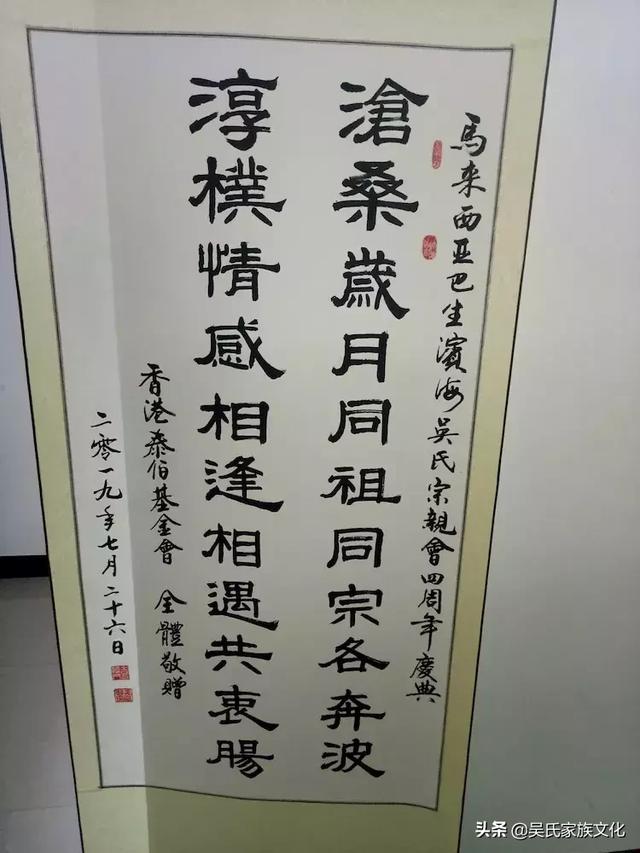 馬来西亚巴生濱海吳氏宗親會四周年慶典
滄桑歲月同祖同宗各奔波
淳樸情感相逢相遇共衷腸
香港泰伯基金會 全體敬贈
二零一九年七月二十六日
头条 @吴氏家族文化